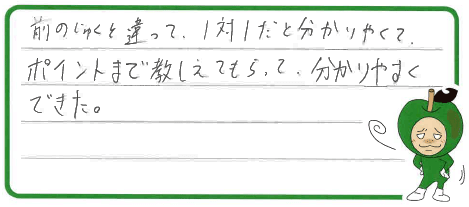 前のじゅくと違って、1対1だと分かりやくて、
ポイントまで教しえてもらって、分かりやすく
できた。